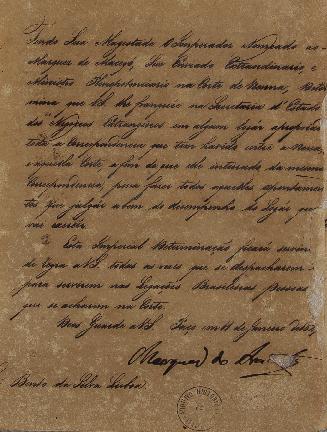 Tendo Sua Magestade O Imperador Nomeado ao
Marquez de Maceyó, Seu Enviado Extraordinario, e
Ministro Plenipotenciario na Corte de Vienna, Deter
mina que V.S. lhe franquie na Secretaria d'Estado
dos Negocios Estrangeiros em algum lugar apropriado
toda a Correspondencia que tem havido entre a Nossa,
e aquella Corte a fim de que elle inteirado da mesma
Correspondencia, possa fazer todos aquelles apontamen
tos que julgar a bem do desempenho do Lugar que
vai exercer.
Esta Imperial Determinação ficará servin
do de regra a V.S. todas as vezes que se despacharem
para servirem nas Legações Brasileiras Pessoas
que se acharem na Corte.
Deos Guarde a V.S. Paço, em 11 de Janeiro de
Marquez do
Bento da Silva Lisboa.